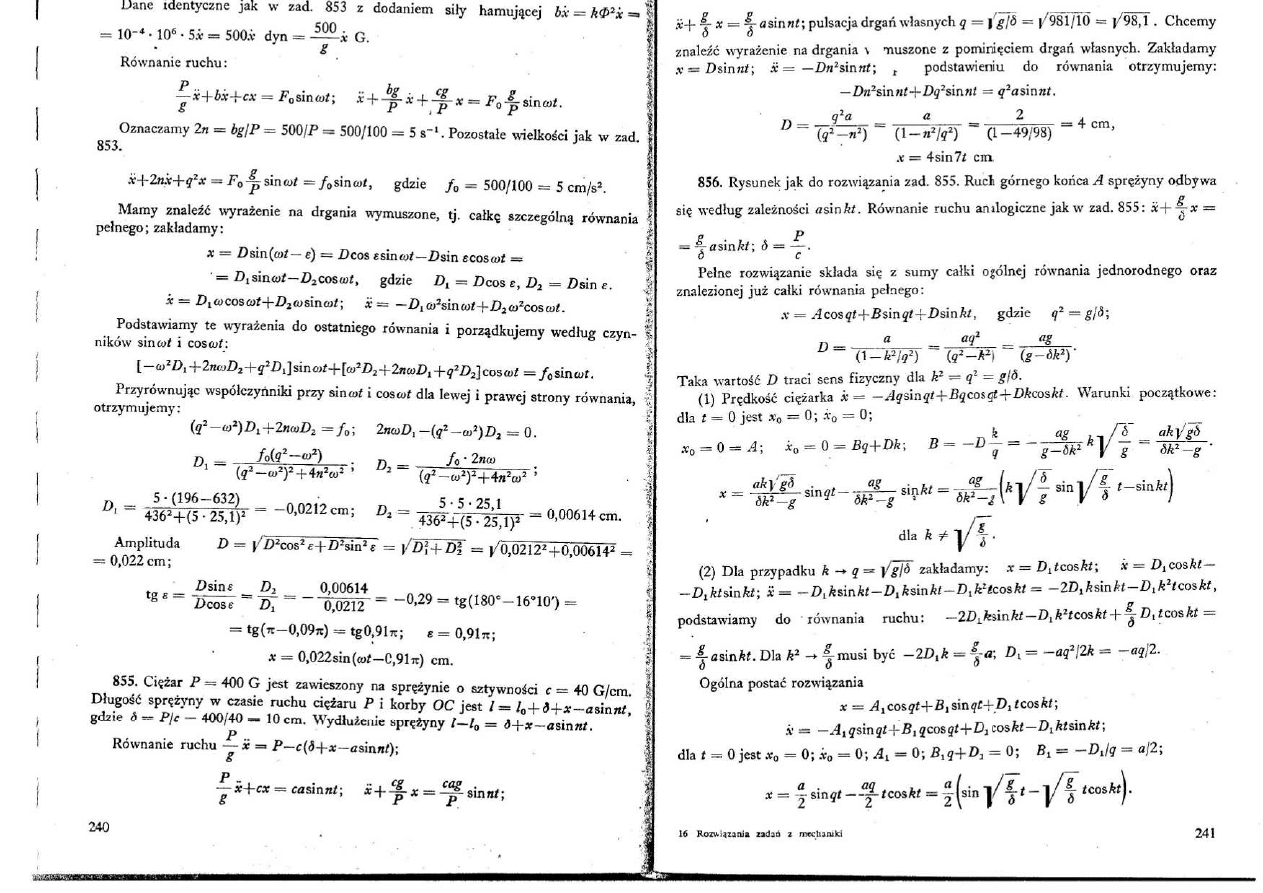 Dane identyczne jak w zad. 853 z dodaniem siły hamującej bẋ = kΦ²ẋ =
= 10⁻⁴ · 10⁶ · 5ẋ = 500ẋ dyn = 500/g ẋ G.
Równanie ruchu:
P/g ẍ+bẋ+cx = F₀sinωt; ẍ + bg/P ẋ + cg/P x = F₀ g/P sinωt.
Oznaczamy 2n = bg/P = 500/P = 500/100 = 5 s⁻¹. Pozostałe wielkości jak w zad.
853.
ẍ+2nẋ+q²x = F₀ g/P sinωt = f₀sinωt, gdzie f₀ = 500/100 = 5 cm/s².
Mamy znaleźć wyrażenie na drgania wymuszone, tj. całkę szczególną równania
pełnego; zakładamy:
x = Dsin(ωt−ε) = Dcos εsinωt−Dsin εcosωt =
= D₁sinωt−D₂cosωt, gdzie D₁ = Dcos ε, D₂ = Dsin ε.
ẋ = D₁ωcosωt+D₂ωsinωt; ẍ = −D₁ω²sinωt+D₂ω²cosωt.
Podstawiamy te wyrażenia do ostatniego równania i porządkujemy według czyn-
ników sinωt i cosωt:
[−ω²D₁+2nωD₂+q²D₁]sinωt+[ω²D₂+2nωD₁+q²D₂]cosωt = f₀sinωt.
Przyrównując współczyńniki przy sinωt i cosωt dla lewej i prawej strony równania,
otrzymujemy:
(q²−ω²)D₁+2nωD₂ = f₀; 2nωD₁−(q²−ω²)D₂ = 0.
D₁ = f₀(q²−ω²)/((q²−ω²)²+4n²ω²); D₂ = f₀ · 2nω/((q²−ω²)²+4n²ω²);
D₁ = 5 · (196−632)/(436²+(5 · 25,1)²) = −0,0212 cm; D₂ = 5 · 5 · 25,1/(436²+(5 · 25,1)²) = 0,00614 cm.
Amplituda D = √(D²cos² ε+D²sin² ε) = √(D₁²+D₂²) = √(0,0212²+0,00614²) =
= 0,022 cm;
tg ε = Dsin ε/Dcos ε = D₂/D₁ = − 0,00614/0,0212 = −0,29 = tg(180°−16°10') =
= tg(π−0,09π) = tg0,91π; ε = 0,91π;
x = 0,022sin(ωt−0,91π) cm.
855. Ciężar P = 400 G jest zawieszony na sprężynie o sztywności c = 40 G/cm.
Długość sprężyny w czasie ruchu ciężaru P i korby OC jest l = l₀+δ+x−asinnt,
gdzie δ = P/c − 400/40 = 10 cm. Wydłużenie sprężyny l−l₀ = δ+x−asinnt.
Równanie ruchu P/g ẍ = P−c(δ+x−asinnt);
P/g ẍ+cx = casinnt; ẍ + cg/P x = cag/P sinnt;
240
ẍ+ g/δ x = g/δ asinnt; pulsacja drgań własnych q = √(g/δ) = √(981/10) = √(98,1). Chcemy
znaleźć wyrażenie na drgania muszone z pominięciem drgań własnych. Zakładamy
x = Dsinnt; ẍ = −Dn²sinnt; podstawieniu do równania otrzymujemy:
−Dn²sinnt+Dq²sinnt = q²asinnt.
D = q²a/(q²−n²) = a/(1−n²/q²) = 2/(1−49/98) = 4 cm,
x = 4sin7t cm.
856. Rysunek jak do rozwiązania zad. 855. Ruch górnego końca A sprężyny odbywa
się według zależności asinkt. Równanie ruchu analogiczne jak w zad. 855: ẍ+ g/δ x =
= g/δ asinkt; δ = P/c.
Pełne rozwiązanie składa się z sumy całki ogólnej równania jednorodnego oraz
znalezionej już całki równania pełnego:
x = Acosqt+Bsinqt+Dsinkt, gdzie q² = g/δ;
D = a/(1−k²/q²) = aq²/(q²−k²) = ag/(g−δk²).
Taka wartość D traci sens fizyczny dla k² = q² = g/δ.
(1) Prędkość ciężarka ẋ = −Aqsinqt+Bqcosqt+Dkcoskt. Warunki początkowe:
dla t = 0 jest x₀ = 0; ẋ₀ = 0;
x₀ = 0 = A; ẋ₀ = 0 = Bq+Dk; B = −D k/q = − ag/(g−δk²) k√(δ/g) = ak√(gδ)/(δk²−g).
x = ak√(gδ)/(δk²−g) sinqt− ag/(δk²−g) sinkt = ag/(δk²−g) (k√(δ/g) sin√(g/δ) t−sinkt)
dla k ≠ √(g/δ).
(2) Dla przypadku k → q = √(g/δ) zakładamy: x = D₁tcoskt; ẋ = D₁coskt−
−D₁ktsinkt; ẍ = −D₁ksinkt−D₁ksinkt−D₁k²tcoskt = −2D₁ksinkt−D₁k²tcoskt,
podstawiamy do równania ruchu: −2D₁ksinkt−D₁k²tcoskt+ g/δ D₁tcoskt =
= g/δ asinkt. Dla k² → g/δ musi być −2D₁k = g/δ a; D₁ = −aq²/2k = −aq/2.
Ogólna postać rozwiązania
x = A₁cosqt+B₁sinqt+D₁tcoskt;
ẋ = −A₁qsinqt+B₁qcosqt+D₁coskt−D₁ktsinkt;
dla t = 0 jest x₀ = 0; ẋ₀ = 0; A₁ = 0; B₁q+D₁ = 0; B₁ = −D₁/q = a/2;
x = a/2 sinqt − aq/2 tcoskt = a/2 (sin√(g/δ) t−√(g/δ) tcoskt).
16 Rozwiązania zadań z mechaniki
241